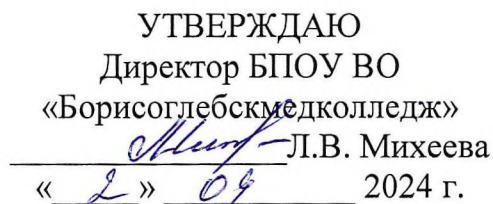 УТВЕРЖДАЮ
Директор БПОУ ВО
«Борисоглебскмедколледж»
Л.В. Михеева
« 2 » 09 2024 г.